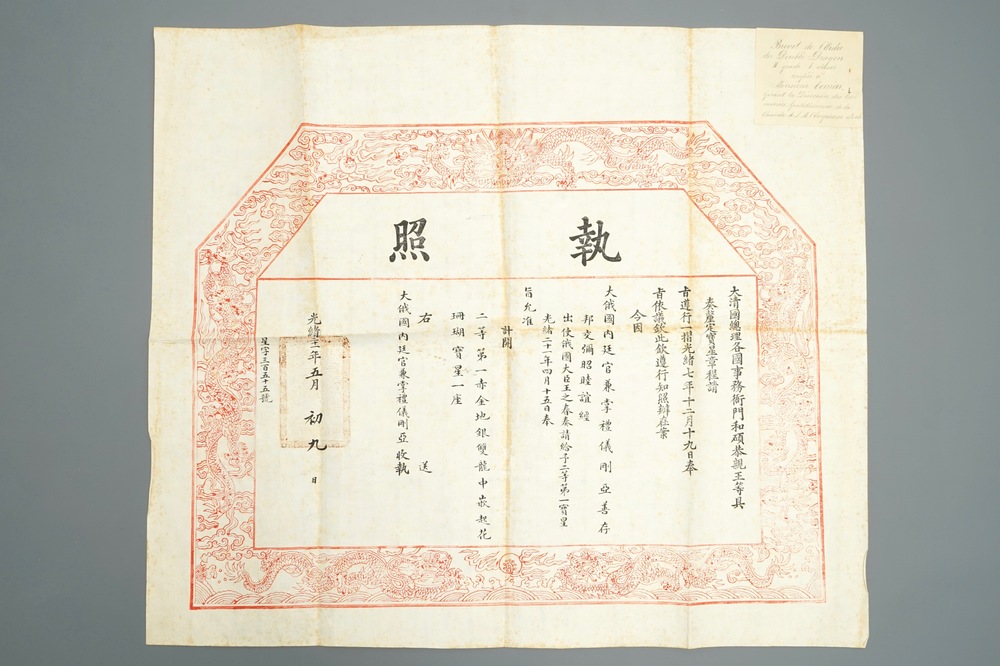 Brevet de l'Ordre
du Double Dragon
II grade 1 classe
conféré à
Monsieur
執照
大清國總理各國事務衙門和碩恭親王等具
奏釐定寶星章程請
旨遵行一摺光緒七年十二月十九日奉
旨依議欽此欽遵行知照辦在案
今因
大俄國內廷官兼掌禮儀剛亞善存
邦交彌昭睦誼經
出使俄國大臣王之春奏請給予二等第一寶星
光緒二十一年四月十五日奉
旨允准
計開
二等第一赤金地銀雙龍中嵌起花
珊瑚寶星一座
右 送
大俄國內廷官兼掌禮儀剛亞收執
光緒二十一年五月 初九 日
星字三百五十五號